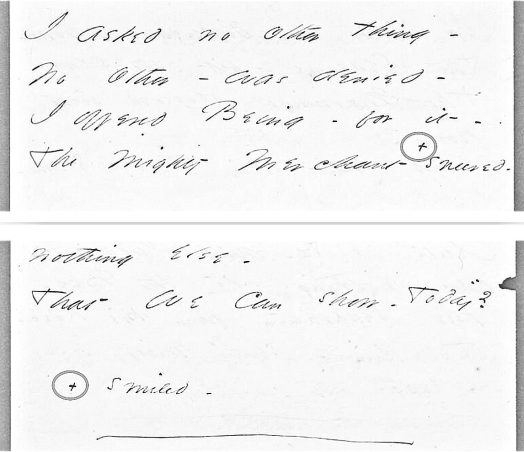 I asked no other thing -
No other - was denied -
I offered Being - for it -
The Mighty Merchant + sneered.
nothing else -
That We can show - Today"?
+ smiled -